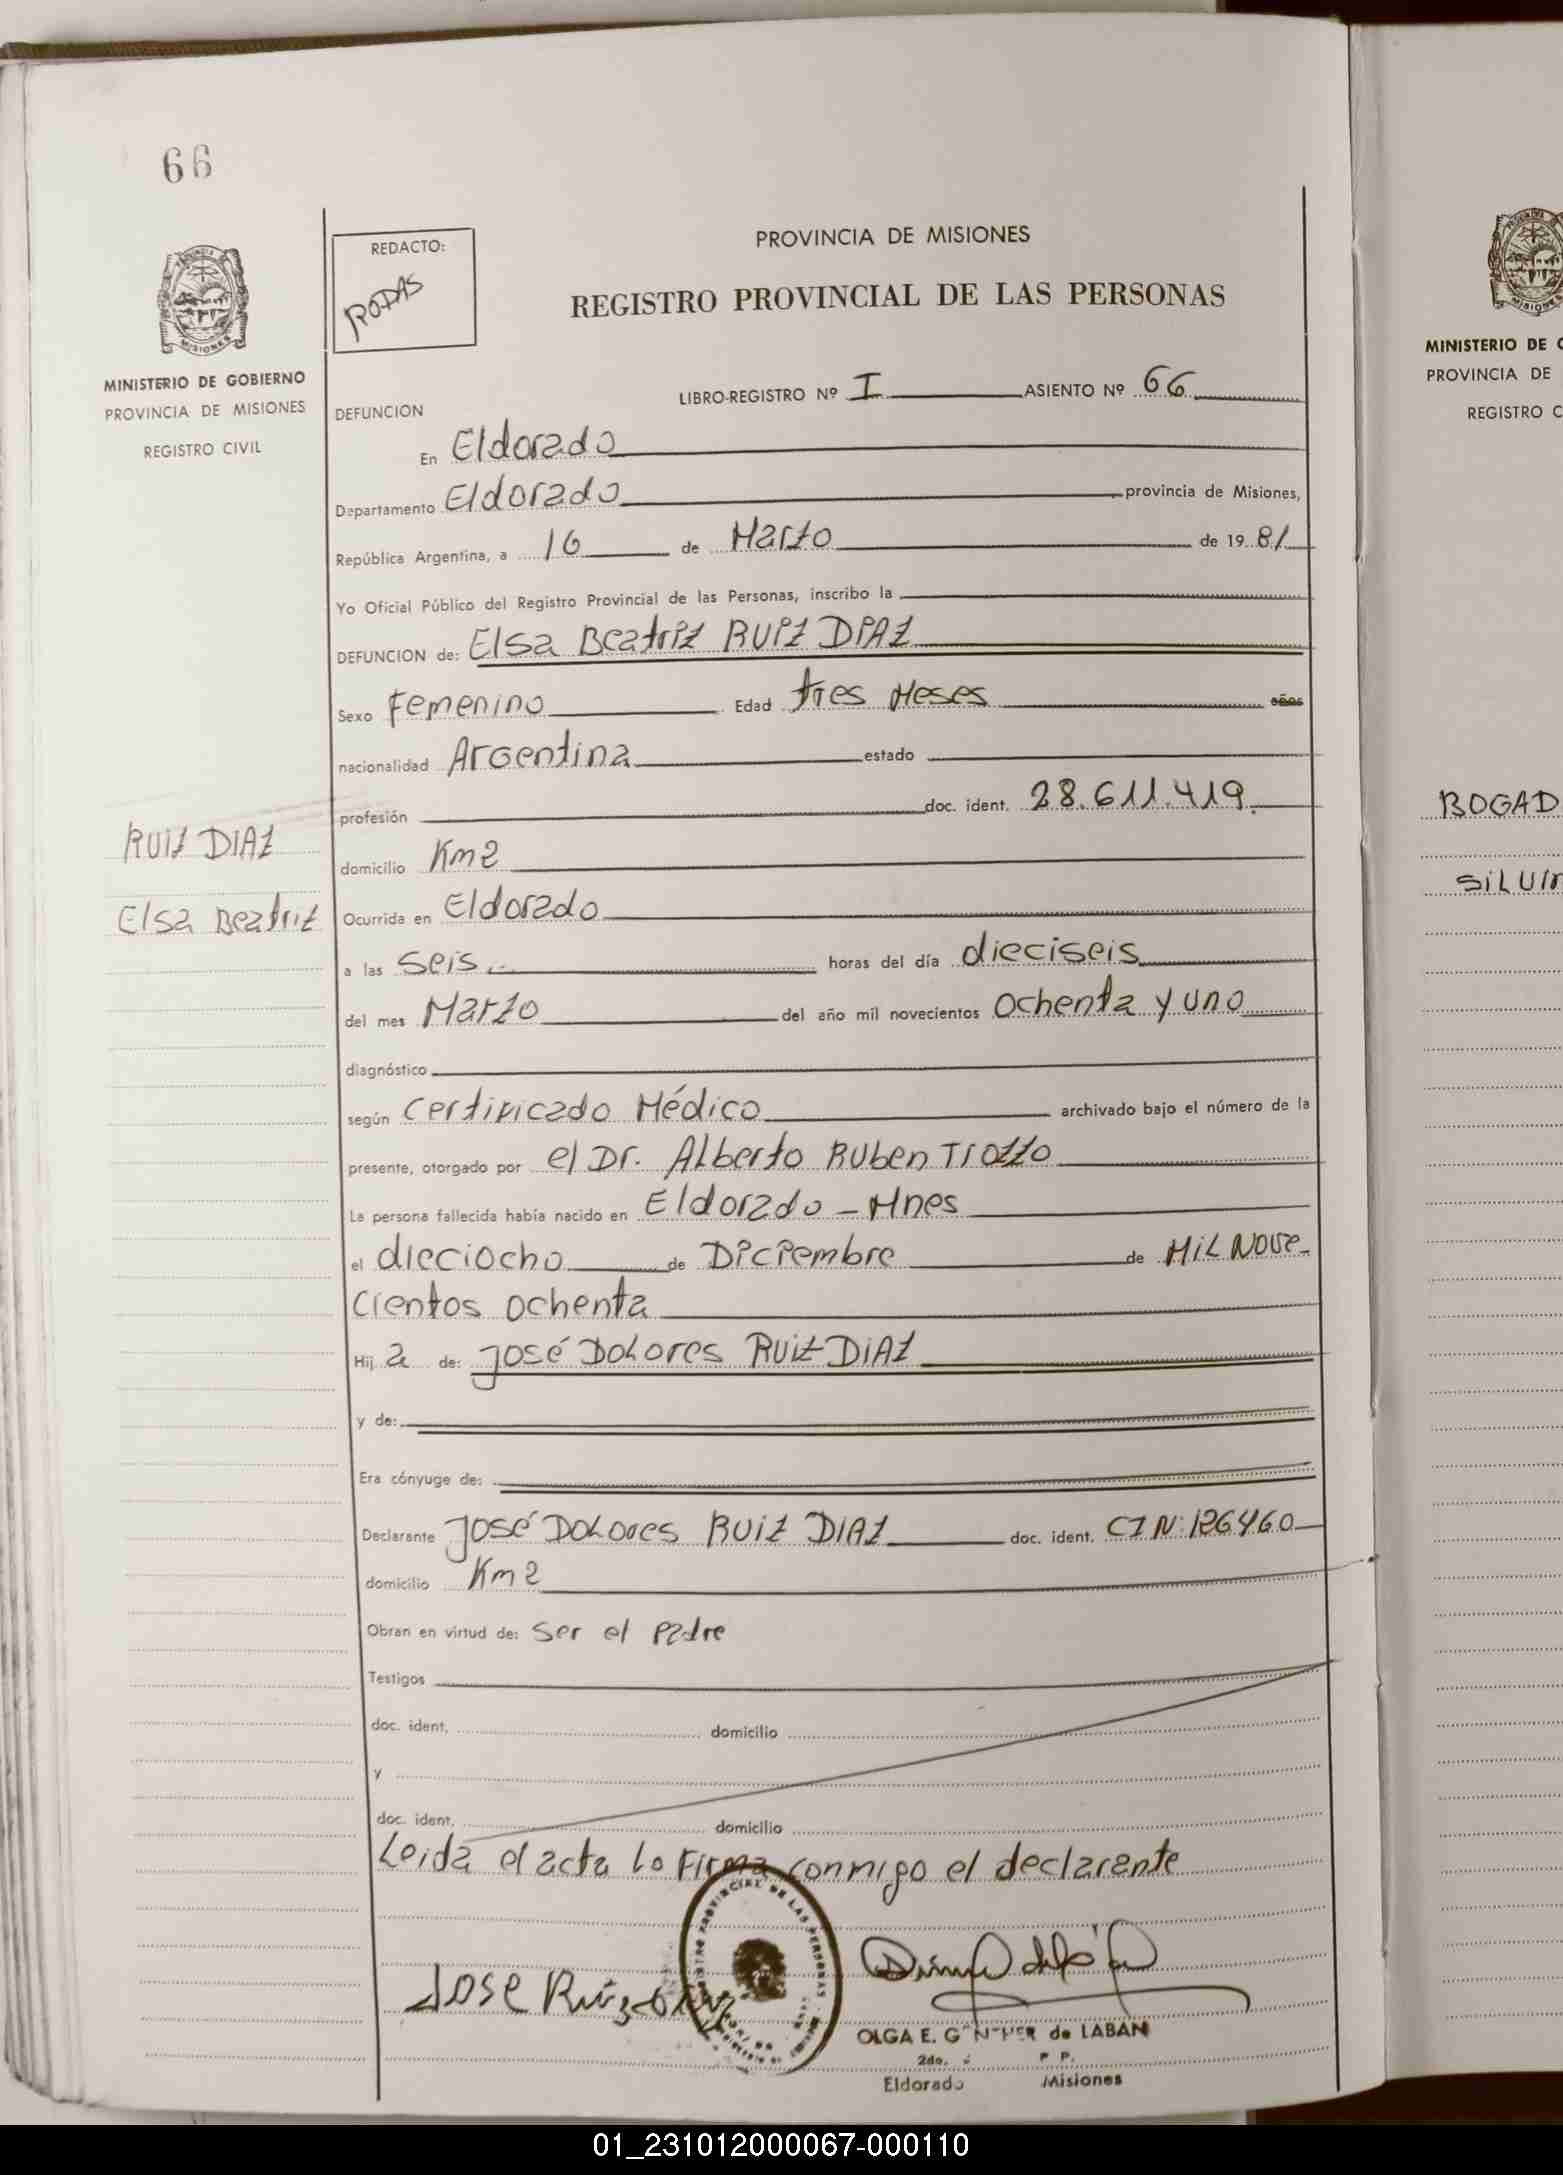 66
REDACTO:
RODAS
PROVINCIA DE MISIONES
REGISTRO PROVINCIAL DE LAS PERSONAS
PROVINCIA DE
MISIONES
MINISTERIO DE GOBIERNO
PROVINCIA DE MISIONES
REGISTRO CIVIL
LIBRO-REGISTRO Nº I ASIENTO Nº 66
DEFUNCION
En Eldorado
Departamento Eldorado provincia de Misiones,
República Argentina, a 16 de Marzo de 1981
Yo Oficial Público del Registro Provincial de las Personas, inscribo la
DEFUNCION de: Elsa Beatriz RUIZ DIAZ
Sexo Femenino Edad tres Meses años
nacionalidad Argentina estado
profesión doc. ident. 28.611.419.
RUIZ DIAZ
domicilio Km2
Elsa Beatriz
Ocurrida en Eldorado
a las seis horas del día dieciseis
del mes Marzo del año mil novecientos ochenta y uno
diagnóstico
según Certificado Médico archivado bajo el número de la
presente, otorgado por el Dr. Alberto Ruben Trozzo
La persona fallecida había nacido en Eldorado - Mnes
el dieciocho de Diciembre de Mil Nove-
cientos ochenta
Hij a de: José Dolores RUIZ DIAZ
y de:
Era cónyuge de:
Declarante José Dolores RUIZ DIAZ doc. ident. CI N: 126460
domicilio Km 2
Obran en virtud de: ser el Padre
Testigos
doc. ident. domicilio
y
doc. ident. domicilio
Leida el acta lo Firma conmigo el declarante
JOSE Ruiz Diaz
OLGA E. GÜNTHER de LABAN
2do. P. P.
Eldorado Misiones
MISIONES
MINISTERIO DE
PROVINCIA DE
REGISTRO
BOGAD
SILVI
01_231012000067-000110